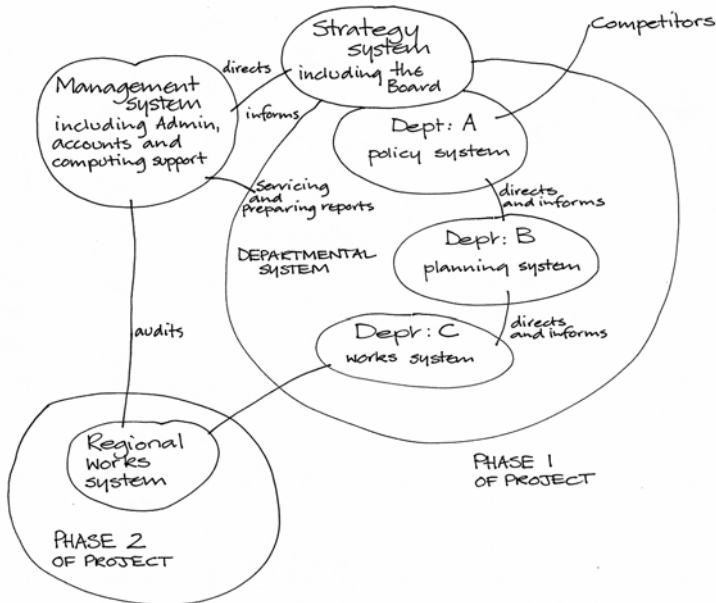 Strategy
system
including the
Board
Competitors
directs
informs
Management
system
including Admin,
accounts and
computing support
Dept: A
policy system
Servicing
and
preparing reports
directs
and informs
DEPARTMENTAL
SYSTEM
Dept: B
planning system
directs
and informs
Dept: C
works system
audits
Regional
works
system
PHASE 1
OF PROJECT
PHASE 2
OF PROJECT